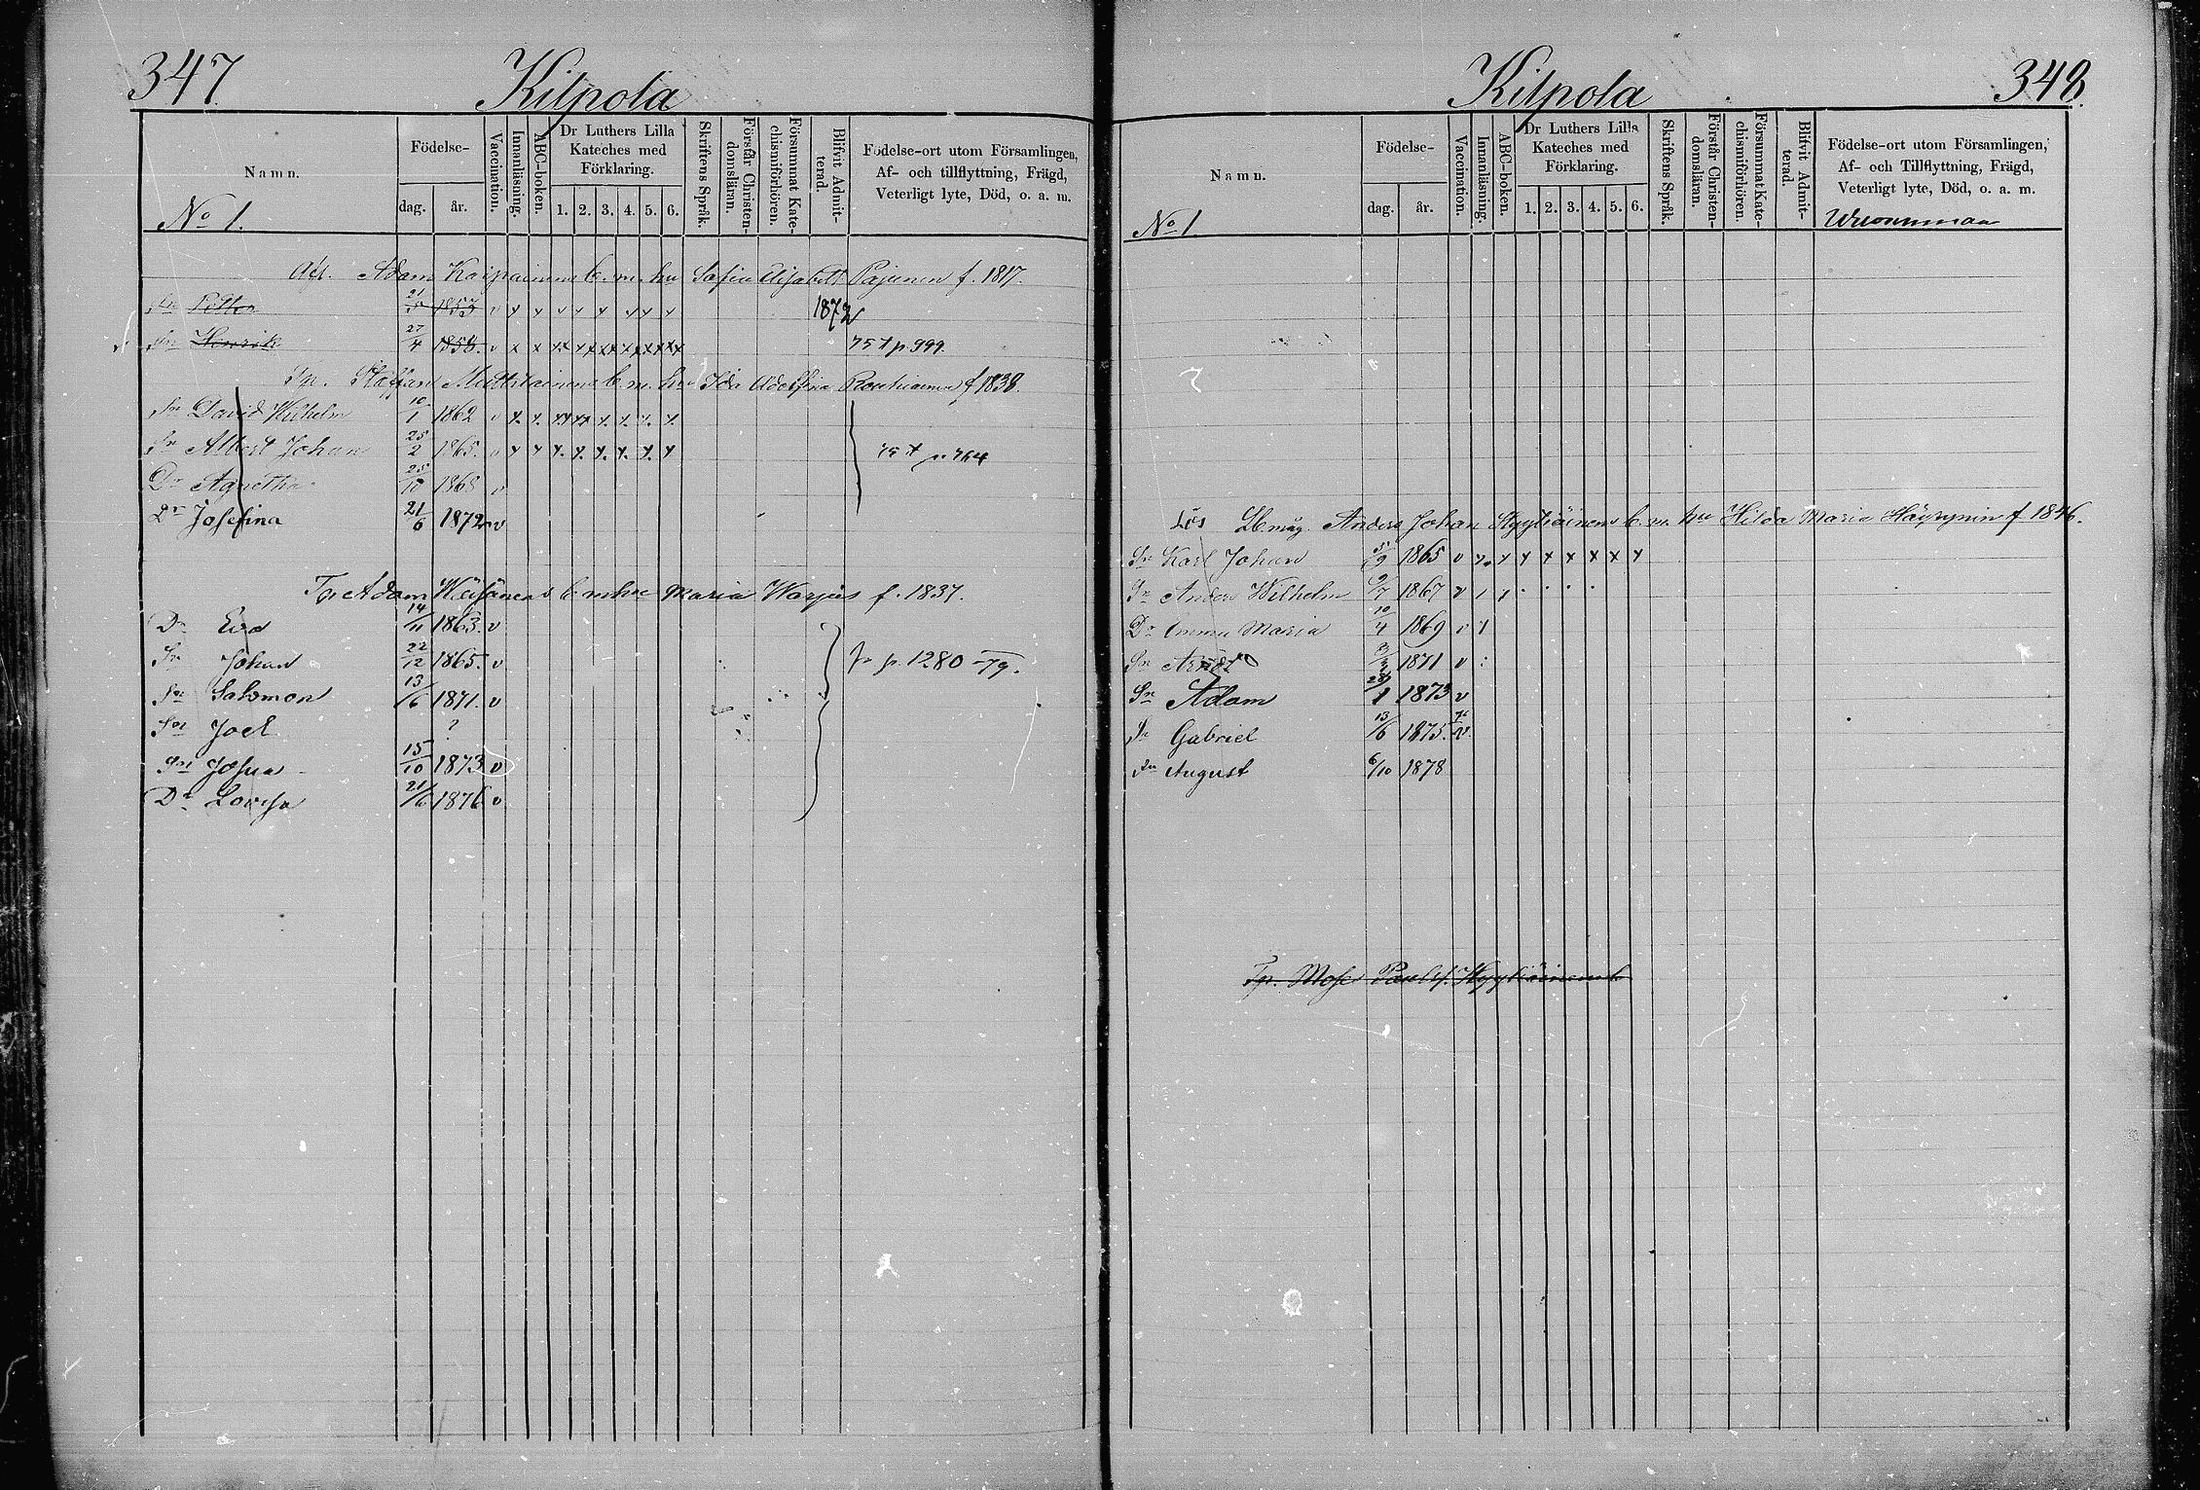 347
Kilpola
Namn.
Födelse-
dag. år.
Vaccination.
Innanläsning.
ABC-boken.
Dr Luthers Lilla Kateches med Förklaring.
1. 2. 3. 4. 5. 6.
Skriftens Språk.
Förstår Christendomsläran.
Försummat Katechismiförhören.
Blifvit Admitterad.
Födelse-ort utom Församlingen,
Af- och tillflyttning, Frägd,
Veterligt lyte, Död, o. a. m.
No 1.
Adam b. m. hu Sofia Elisabeth Pajunen f. 1817.
Sn Petter 21/5 1853 v x x x x x x x x 1872
Sn Henrik 27/4 1858. v x x xx x xx x xx xx 75 t p. 999.
Tp. Staffan b. m. hu Ida Adolfina f 1838.
Sn David Wilhelm 10/1 1862 v x. x. xx xx x. x. x. x.
Sn Albert Johan 25/2 1865. v x x x. x. x. x. x. x 75 t p. 764
Dr Agnetha 25/10 1868 v
Dr Josefina 21/6 1872 v
Tp Adam b m hu Maria Warjus f. 1837.
Dr Eva 14/11 1863. v
Sn Johan 22/12 1865. v p. 1280 -79.
Sn Salomon 13/6 1871. v
Sn Joel ?
Sn Josua 15/10 1873 v
Dr Lovisa 21/6 1876 v
Kilpola
348.
Namn.
Födelse-
dag. år.
Vaccination.
Innanläsning.
ABC-boken.
Dr Luthers Lilla Kateches med Förklaring.
1. 2. 3. 4. 5. 6.
Skriftens Språk.
Förstår Christendomsläran.
Försummat Katechismiförhören.
Blifvit Admitterad.
Födelse-ort utom Församlingen,
Af- och Tillflyttning, Frägd,
Veterligt lyte, Död, o. a. m.
No 1
Lös Anders Johan Kyytiäinens b. m. hu Hilda Maria Häyrynen f 1846.
Sn Karl Johan 1865 v x. x x x x x x x
Sn Anders Wilhelm 9/7 1867 v
Dr Emma Maria 10/4 1869 v
Sn 1871 v
Sn Adam 1873 v
Sn Gabriel 13/6 1875. v.
Sn August 6/10 1878
Tp. Moses Paulsf. Kyytiäinens b